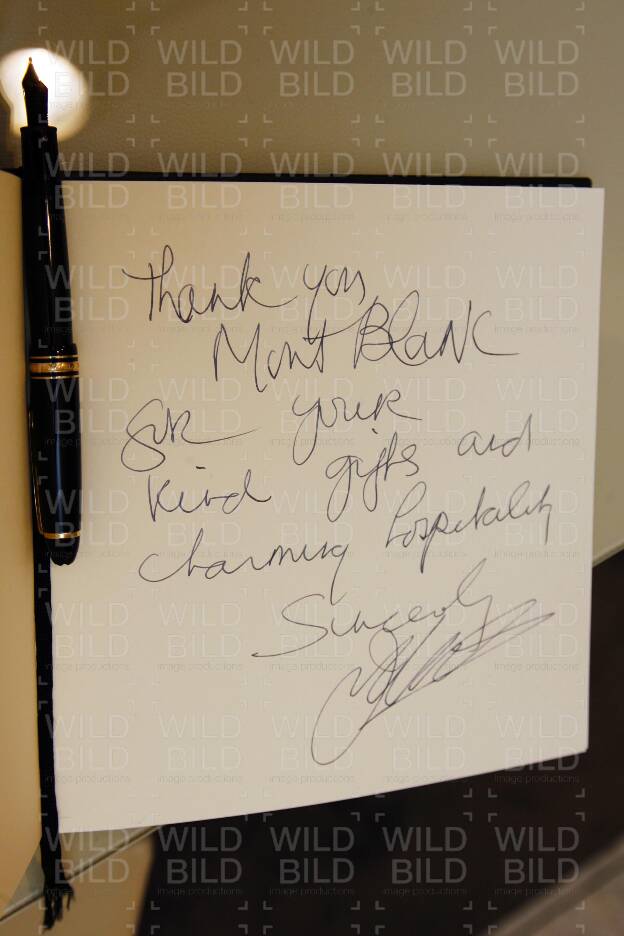 Thank you,
Mont Blanc
for your
kind gifts and
charming hospitality
Sincerely
WILD
BILD
image productions